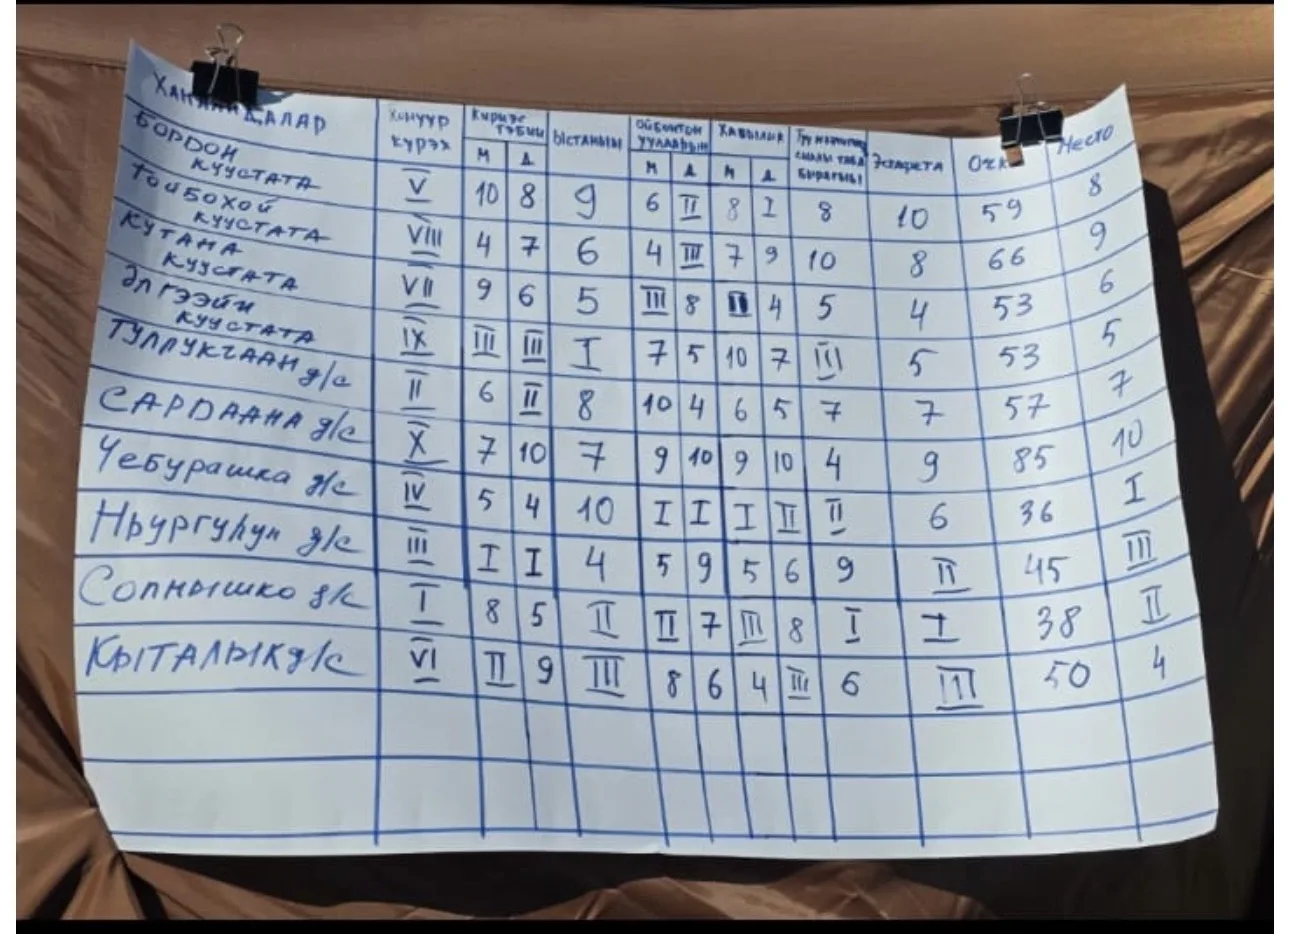 ХАПААНДАЛАР ХОНУУР КҮРЭХ КИРИЭС ТЭБИИ М Д ЫСТАНЫЫ ОЙБОНТОН УУЛААҺЫН М Д ХАБЫЛЫК М Д СЫАЛЫ ТАБА БЫРАҔЫЫ ЭСТАФЕТА ОЧК МЕСТО
БОРДОН КУУСТАТА V 10 8 9 6 II 8 I 8 10 59 8
ТОЙБОХОЙ КУУСТАТА VIII 4 7 6 4 III 7 9 10 8 66 9
КУТАНА КУУСТАТА VII 9 6 5 III 8 II 4 5 4 53 6
ЭЛГЭЭЙИ КУУСТАТА IX III III I 7 5 10 7 III 5 53 5
ТУЛЛУКЧААН д/с II 6 II 8 10 4 6 5 7 7 57 7
САРДААНА д/с X 7 10 7 9 10 9 10 4 9 85 10
Чебурашка д/с IV 5 4 10 I I I II II 6 36 I
Ньургуһун д/с III I I 4 5 9 5 6 9 II 45 III
Солнышко д/с I 8 5 II II 7 III 8 I I 38 II
КЫТАЛЫК д/с VI II 9 III 8 6 4 III 6 III 50 4